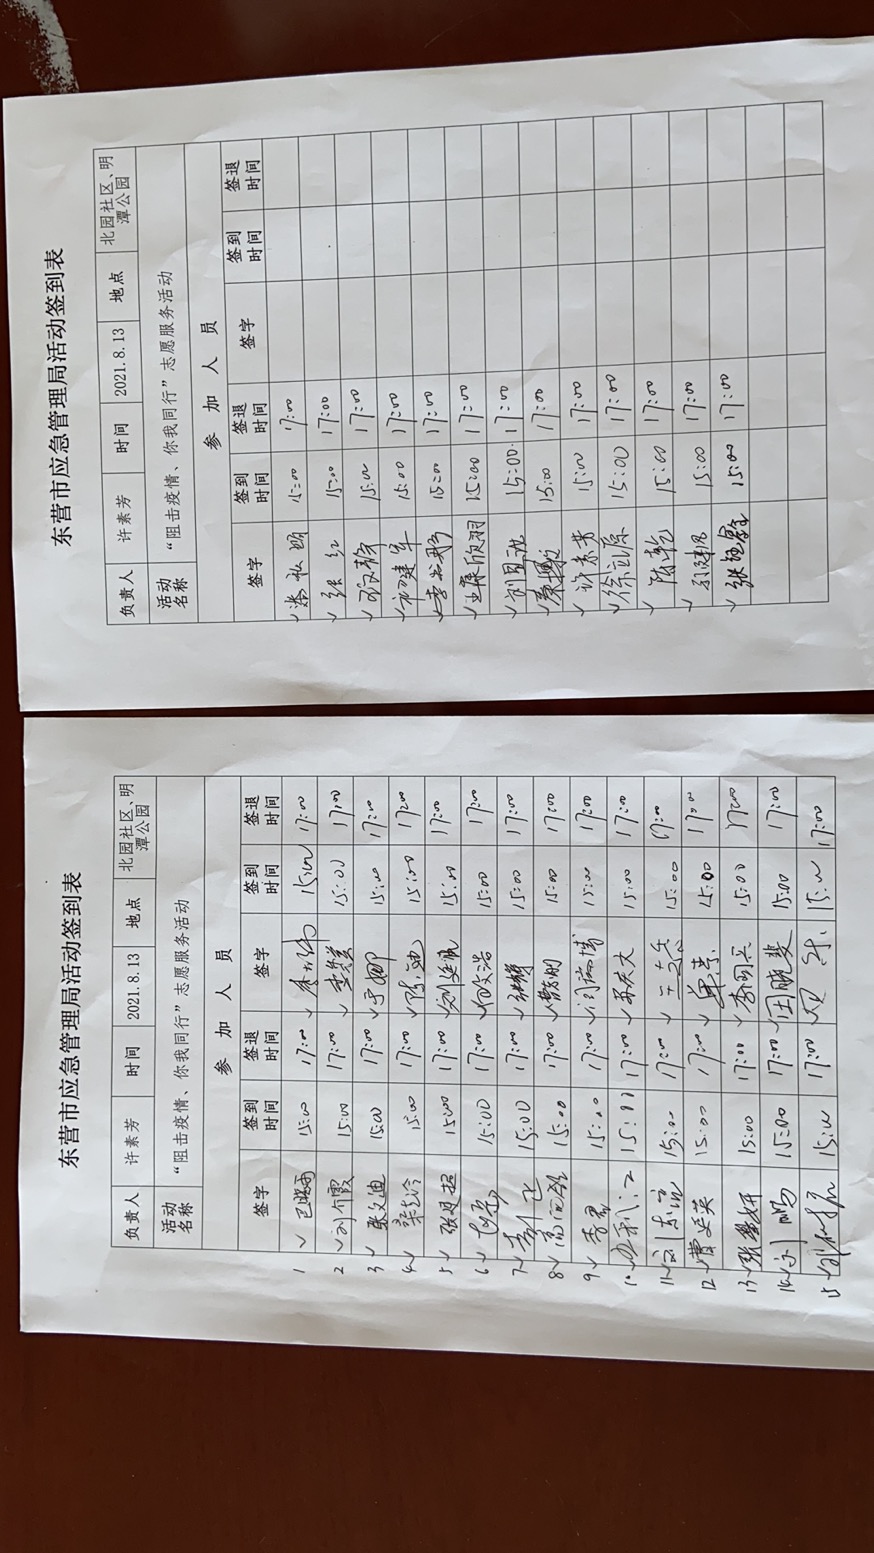 东营市应急管理局活动签到表
负责人 许素芳 时间 2021.8.13 地点 北园社区、明潭公园
活动名称 “阻击疫情、你我同行”志愿服务活动
参加人员
签字 签到时间 签退时间 签字 签到时间 签退时间
1 15:00 17:00 15:00 17:00
2 刘介霞 15:00 17:00 15:00 17:00
3 张文迪 15:00 17:00 于娜 15:00 17:00
4 15:00 17:00 陈迪 15:00 17:00
5 张建超 15:00 17:00 刘延凯 15:00 17:00
6 15:00 17:00 15:00 17:00
7 15:00 17:00 15:00 17:00
8 15:00 17:00 15:00 17:00
9 李军 15:00 17:00 闫瑞博 15:00 17:00
10 15:00 17:00 孟庆大 15:00 17:00
11 15:00 17:00 15:00 17:00
12 曹廷英 15:00 17:00 15:00 17:00
13 15:00 17:00 李国兵 15:00 17:00
14 刘鹏 15:00 17:00 田晓斐 15:00 17:00
15 15:00 17:00 15:00 17:00
东营市应急管理局活动签到表
负责人 许素芳 时间 2021.8.13 地点 北园社区、明潭公园
活动名称 “阻击疫情、你我同行”志愿服务活动
参加人员
签字 签到时间 签退时间 签字 签到时间 签退时间
15:00 17:00
张红 15:00 17:00
15:00 17:00
初建军 15:00 17:00
15:00 17:00
王薛欣羽 15:00 17:00
15:00 17:00
15:00 17:00
许素芳 15:00 17:00
徐立源 15:00 17:00
陈乾 15:00 17:00
15:00 17:00
15:00 17:00